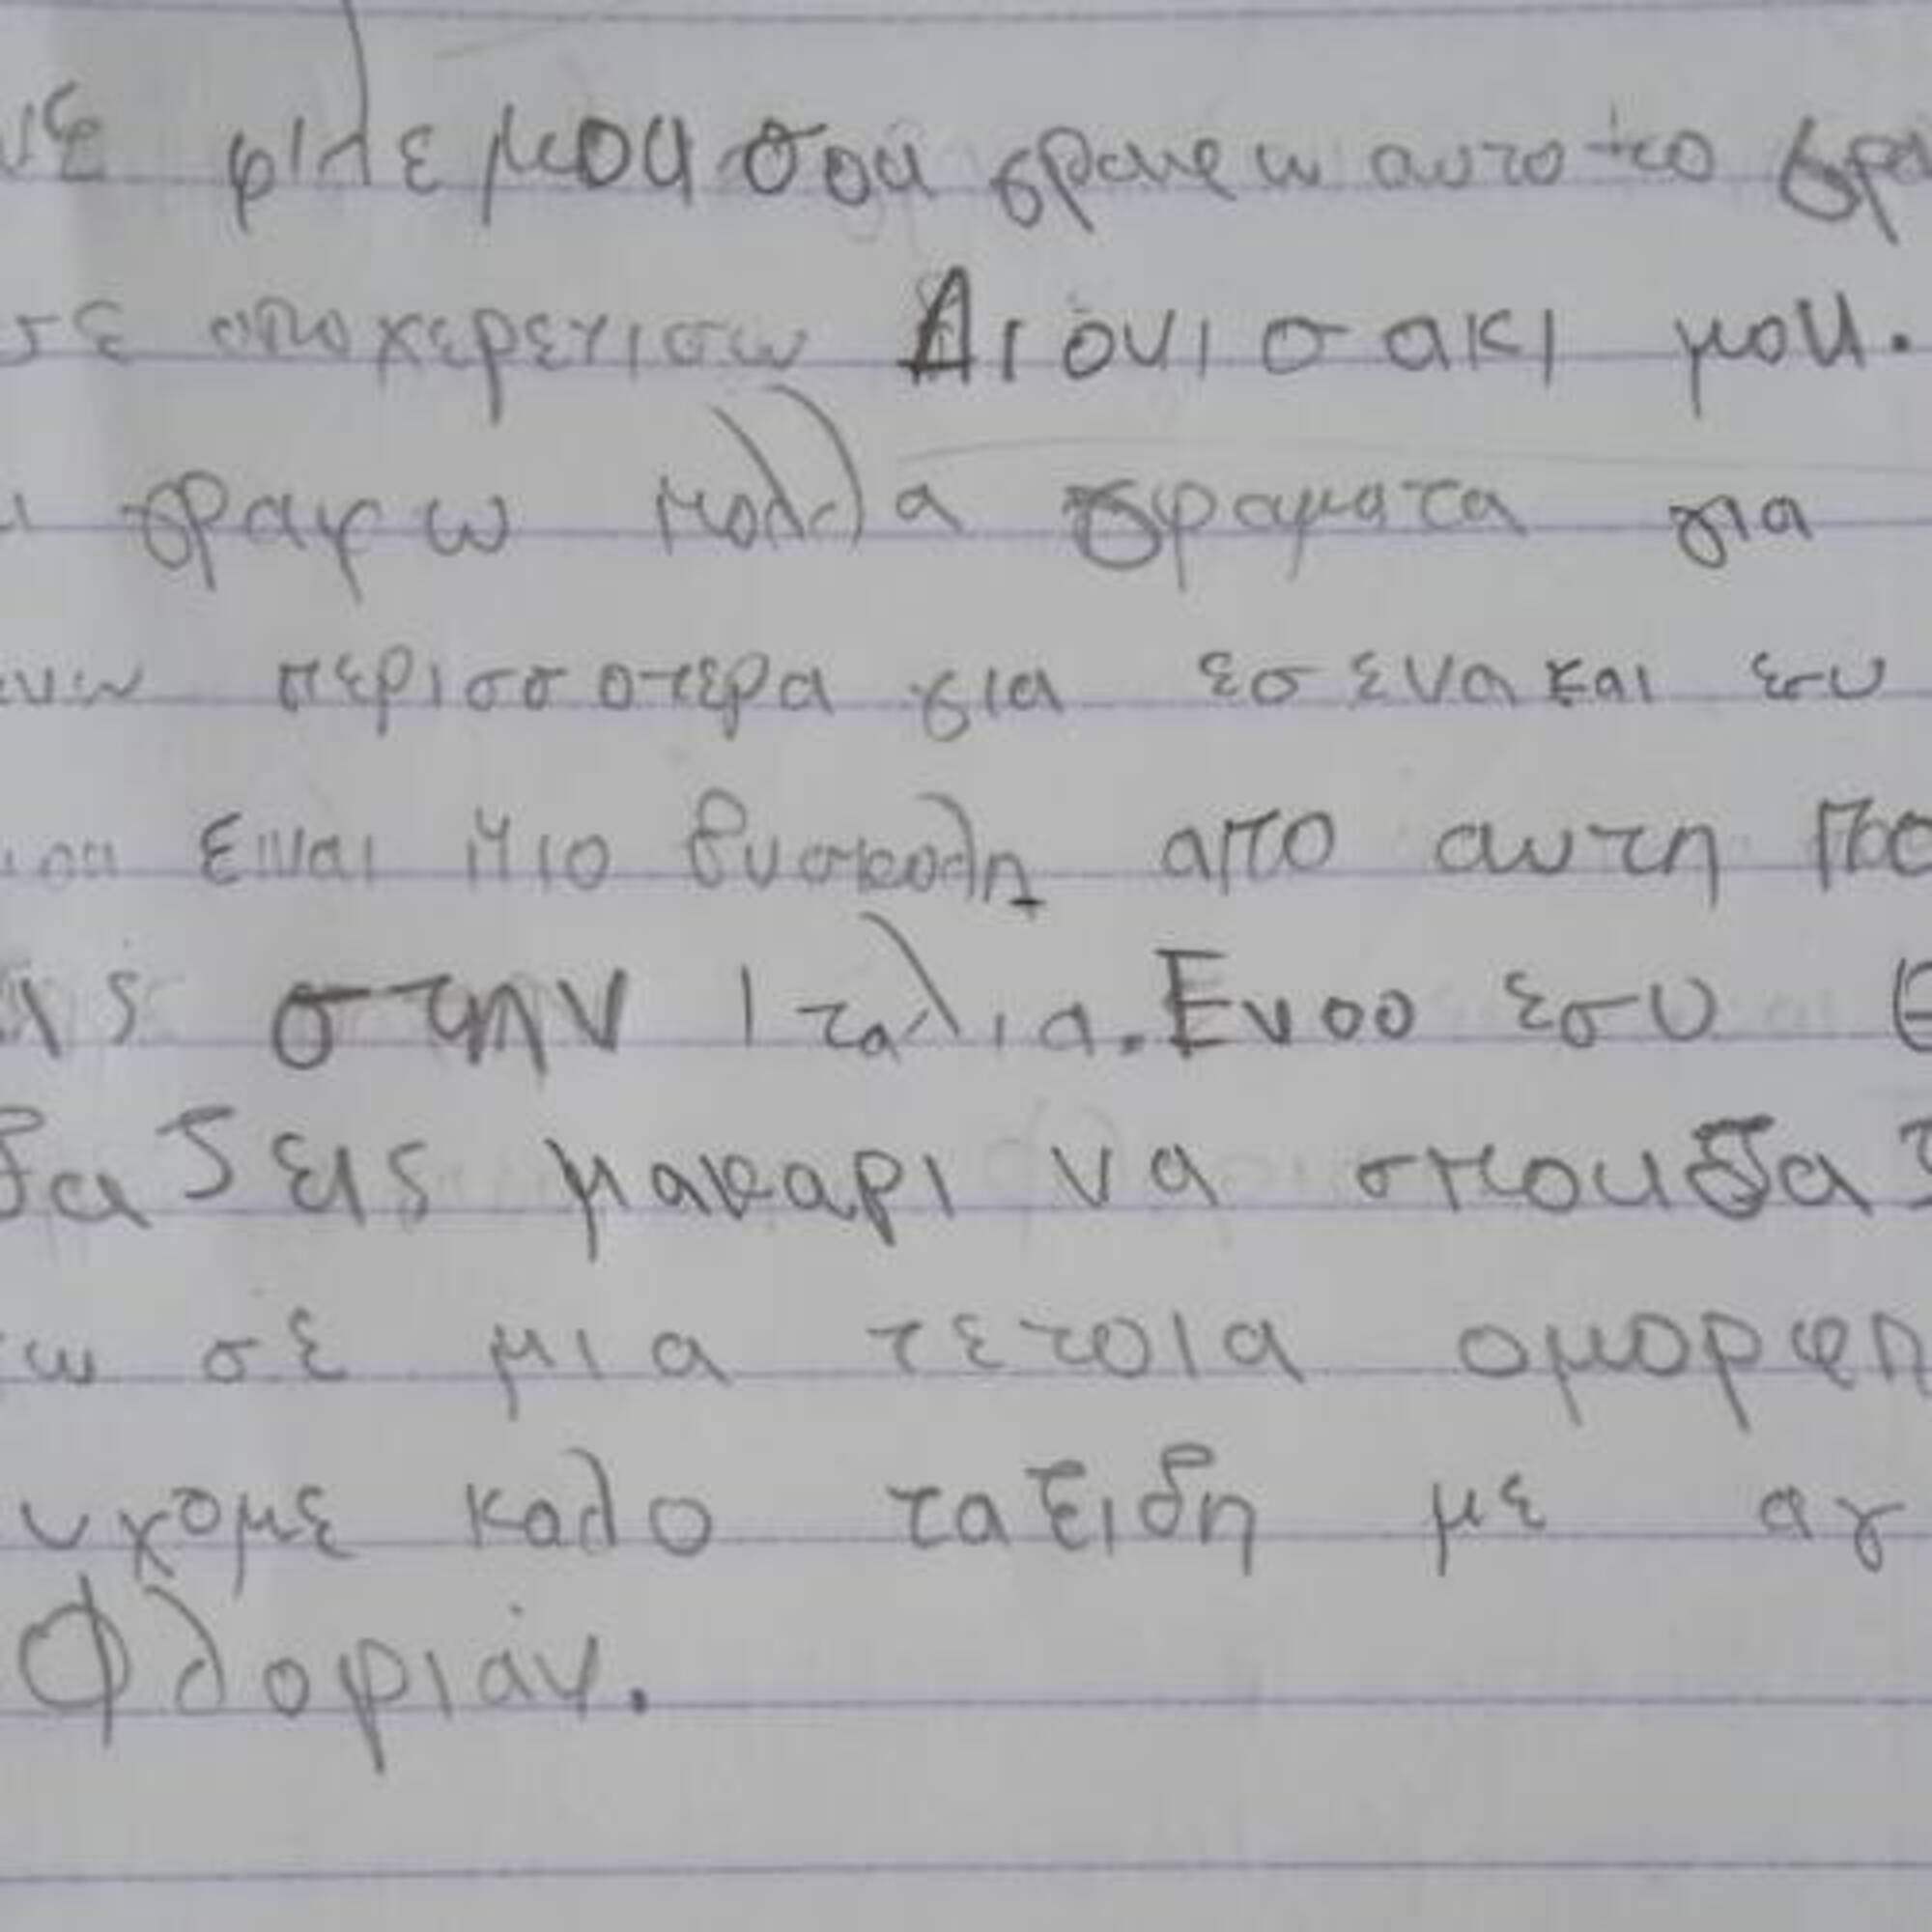 νε φιλε μου σου γραφω αυτο το γρα
σε αποχερετισω Διονισακι μου.
ι γραφω πολλα γραματα για
ενω περισσοτερα για εσενα και εσυ
ειναι πιο δυσκολη απο αυτη πο
εις στην Ιταλια. Ενοο εσυ θ
δαζεις μακαρι να σπουδαζ
ω σε μια τετοια ομορφη
υχομε καλο ταξιδη με αγ
Φλοριάν.